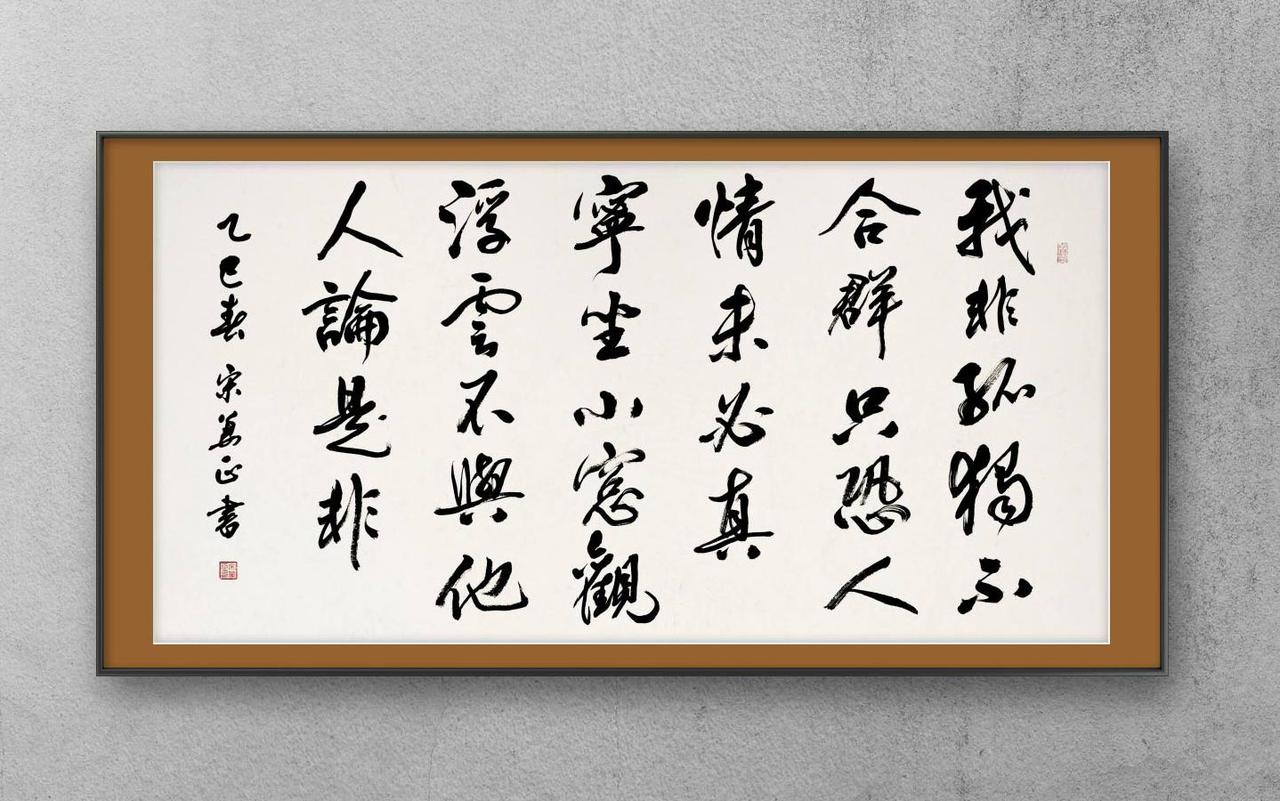 我非孤獨不
合群只恐人
情未必真
寧坐小窓觀
浮雲不與他
人論是非
乙巳春 宋萬正书